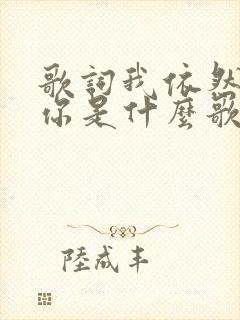 歌詞我依然
你是什麼歌
陸成丰